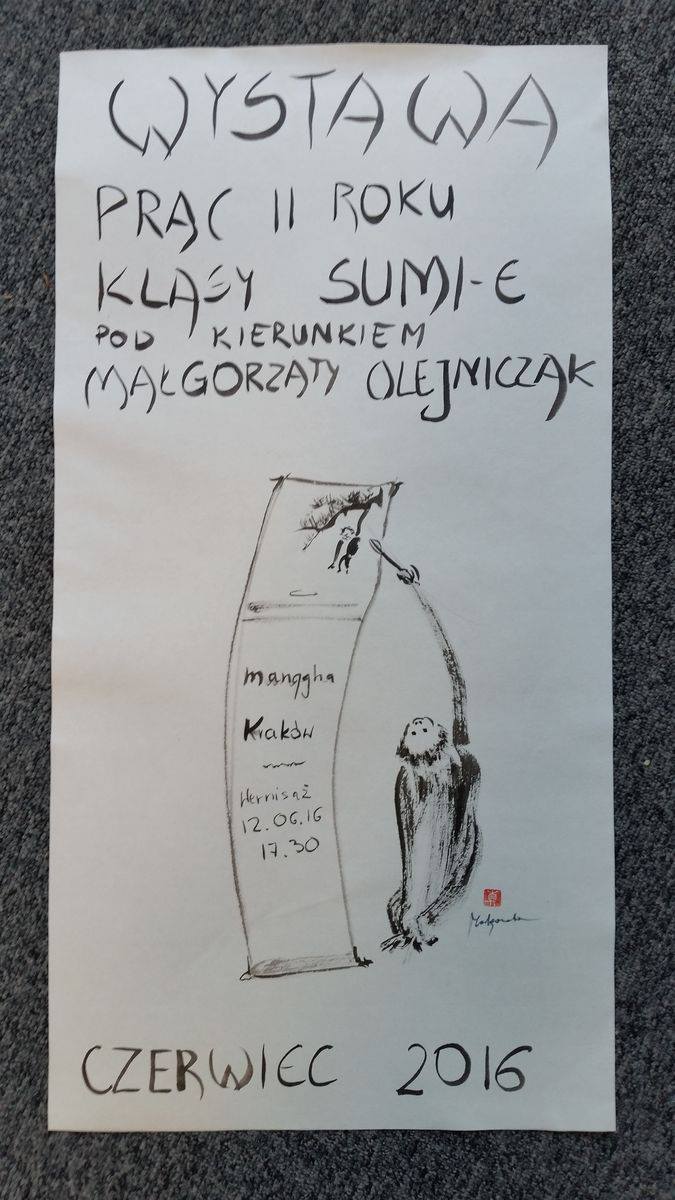 WYSTAWA
PRAC II ROKU
KLASY SUMI-E
POD KIERUNKIEM
MAŁGORZATY OLEJNICZAK
manggha
Kraków
Wernisaż
12.06.16
17.30
CZERWIEC 2016